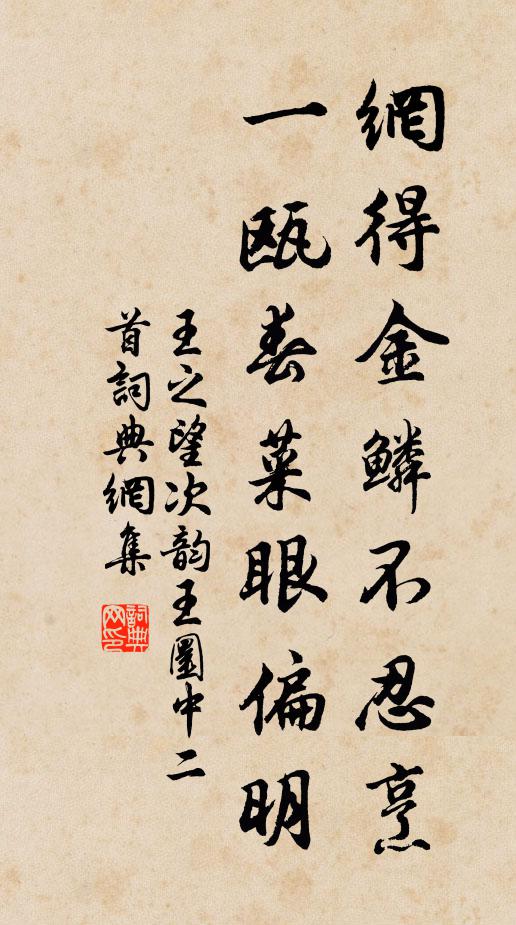 網得金鱗不忍烹
一甌春菜眼偏明
王之望次韵王圃中二
首詞典網集
詞典网印